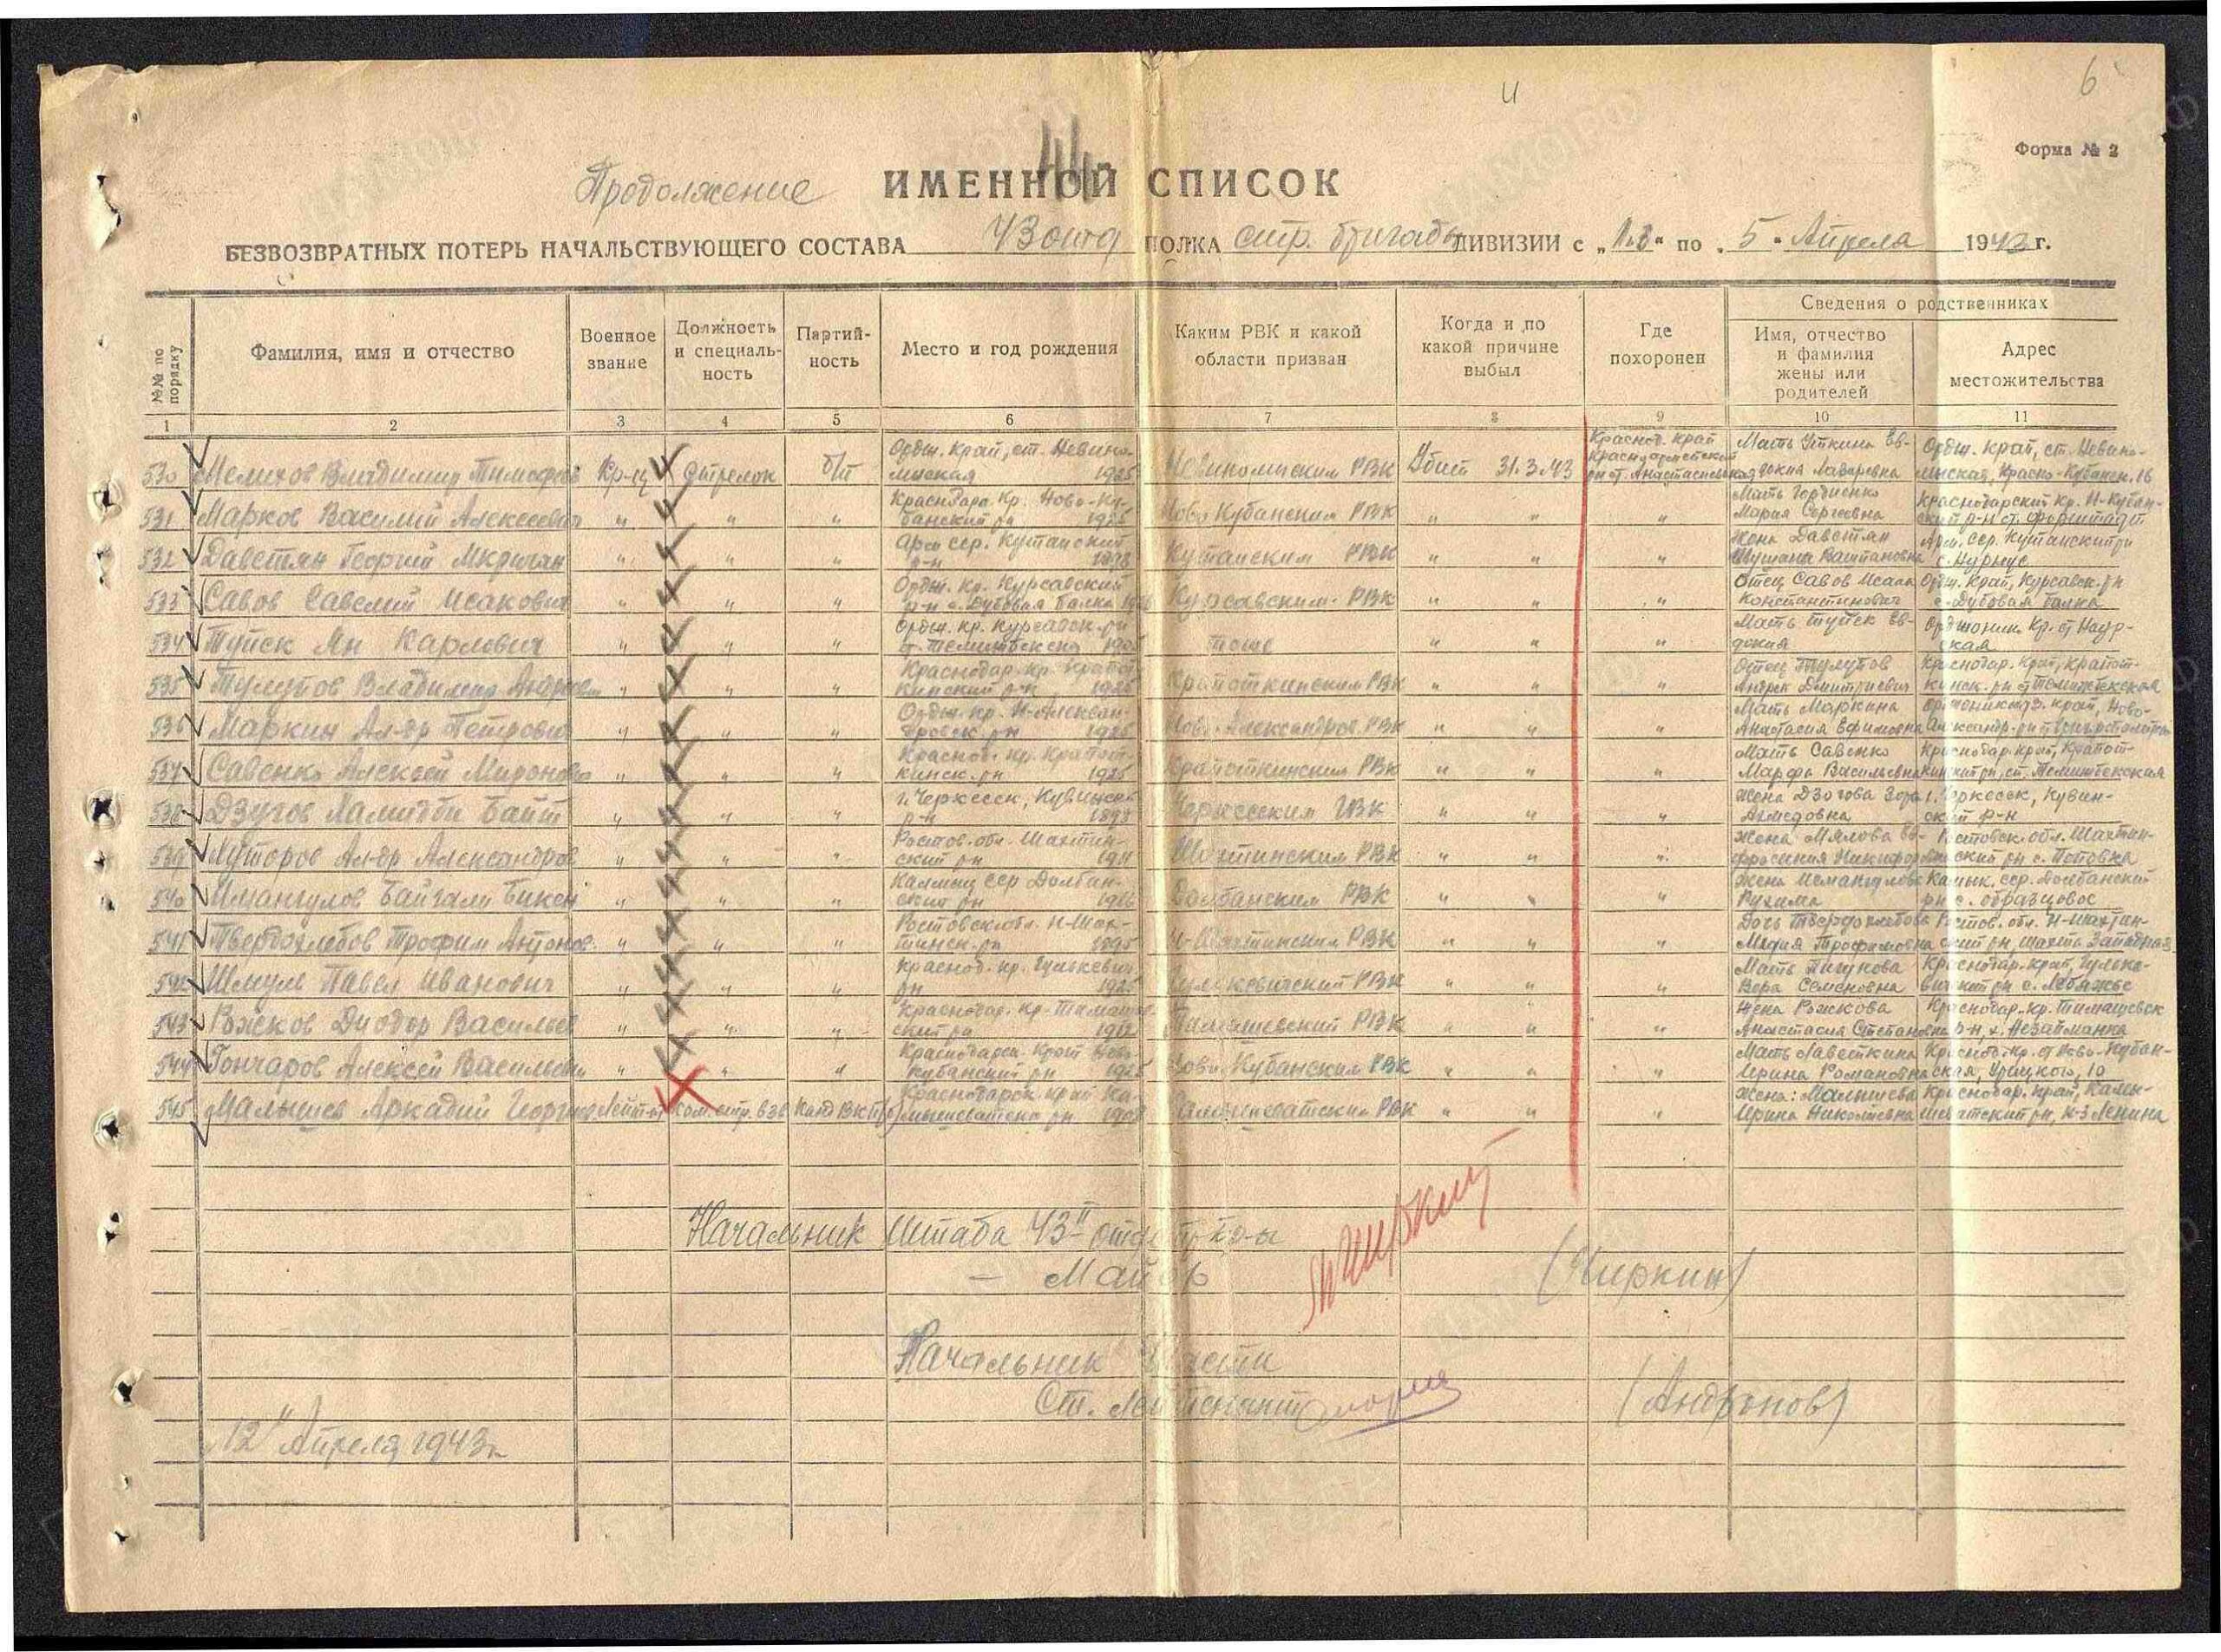 6
и
Форма № 2
Продолжение ИМЕННОЙ СПИСОК
БЕЗВОЗВРАТНЫХ ПОТЕРЬ НАЧАЛЬСТВУЮЩЕГО СОСТАВА 43 ПОЛКА стр. бригады ДИВИЗИИ с „1.3“ по „5“ Апреля 1943 г.
№№ по порядку
Фамилия, имя и отчество
Военное звание
Должность и специальность
Партийность
Место и год рождения
Каким РВК и какой области призван
Когда и по какой причине выбыл
Где похоронен
Сведения о родственниках
Имя, отчество и фамилия жены или родителей
Адрес местожительства
1 2 3 4 5 6 7 8 9 10 11
530 Мелихов Владимир Тимофеев Кр-ец стрелок б/п Ордж. край, ст. Невинно-мысская 1925 Невиномысским РВК Убит 31.3.43 Краснод. край Красноармейский рн ст. Анастасиевская Мать Уткина Ев-докия Лазаревна Ордж. край, ст. Невино-мысская, Красно-Кубанск. 16
531 Марков Василий Алексеевич " " " Краснодарс. Кр. Ново-Ку-банский рн 1925 Ново Кубанским РВК " " " Мать Гордиенко Мария Сергеевна Краснодарский Кр. Н-Кубан-ский р-н ст. Форштадт
532 Даветян Георгий Мкричан " " " Арм сср. Кутайский р-н 1898 Кутайским РВК " " " Жена Даветян Шушана Ваштановна Арм. сср. Кутайский рн с. Нурнус
533 Савов Савелий Исакович " " " Ордж. Кр. Курсавский р-н с. Дубовая балка Курсавским РВК " " " Отец Савов Исаак Константинович Ордж. Край, Курсавск. рн с. Дубовая балка
534 Туйск Ян Карлович " " " Ордж. кр. Курсавск. рн тоже " " " Мать Туйск Ев-докия Орджоник. Кр. ст Наур-ская
535 Тулупов Владимир Андреевич " " " Краснодар. кр. Кропот-кинский р-н 1925 Кропоткинским РВК " " " Отец Тулупов Андрей Дмитриевич Краснодар. Край, Кропот-кинск. рн ст Темижбекская
536 Маркин Ал-др Петрович " " " Ордж. кр. Н-Алексан-дровск. рн 1925 Ново-Александров РВК " " " Мать Маркина Анастасия Ефимовна Орджоникидз. край, Ново-Александр. рн
537 Савенко Алексей Миронович " " " Краснод. кр. Кропот-кинск. рн 1925 Кропоткинским РВК " " " Мать Савенко Марфа Васильевна Краснодар. край, Кропот-кинский рн, ст. Темижбекская
538 Дзугов Ламидби Баит " " " г. Черкесск, Кувинск р-н 1893 Черкесским ГВК " " " Жена Дзогова Зора Ахмедовна г. Черкесск, Кувин-ский р-н
539 Луторов Ал-др Александров " " " Ростов. обл. Шахтин-ский рн 1911 Шахтинским РВК " " " Жена Мялова Ев-фросиния Никифор Ростовск. обл. Шахтин-ский рн с. Поповка
540 Имангулов Байгали Бикен " " " Калмыц сср Долбан-ский рн 1906 Долбанским РВК " " " Жена Исмангулова Рухима Калмык. сср. Долбанский рн с. образцовое
541 Твердохлебов Трофим Антонов. " " " Ростовск обл. Н-Шах-тинск. рн 1895 Н-Шахтинским РВК " " " Дочь Твердохлебова Мария Трофимовна Ростов. обл. Н-Шахтин-ский рн, шахта Западная
542 Шмуль Павел Иванович " " " Краснод. кр. Гулькевич. рн 1925 Гулькевичский РВК " " " Мать Пигунова Вера Семеновна Краснодар. край, Гульке-вичский рн с. Лебяжье
543 Рожков Диодор Васильев " " " Краснодар. кр. Тимашев-ский рн 1912 Тимашевский РВК " " " Жена Рожкова Анастасия Степановна Краснодар. кр. Тимашевск р-н, х. Незайманка
544 Гончаров Алексей Васильеви " " " Краснодарск. Край Ново-кубанский рн 1925 Ново Кубанским РВК " " " Мать Лаветкина Ирина Романовна Краснод. кр. ст Ново-Кубан-ская, Урицкого, 10
545 Малышев Аркадий Георгиев Лейт-нт Ком. стр. взв Канд ВКП(б) Краснодарск. край Ка-мышеватск рн 1908 Камышеватским РВК " " " Жена: Малышева Ирина Николаевна Краснодар. край, Камы-шеватский рн, к-з Ленина
Начальник Штаба 43й
Майор (Чиркин)
Начальник части
Ст. Лейтенант (Андронов)
„12“ Апреля 1943 г.